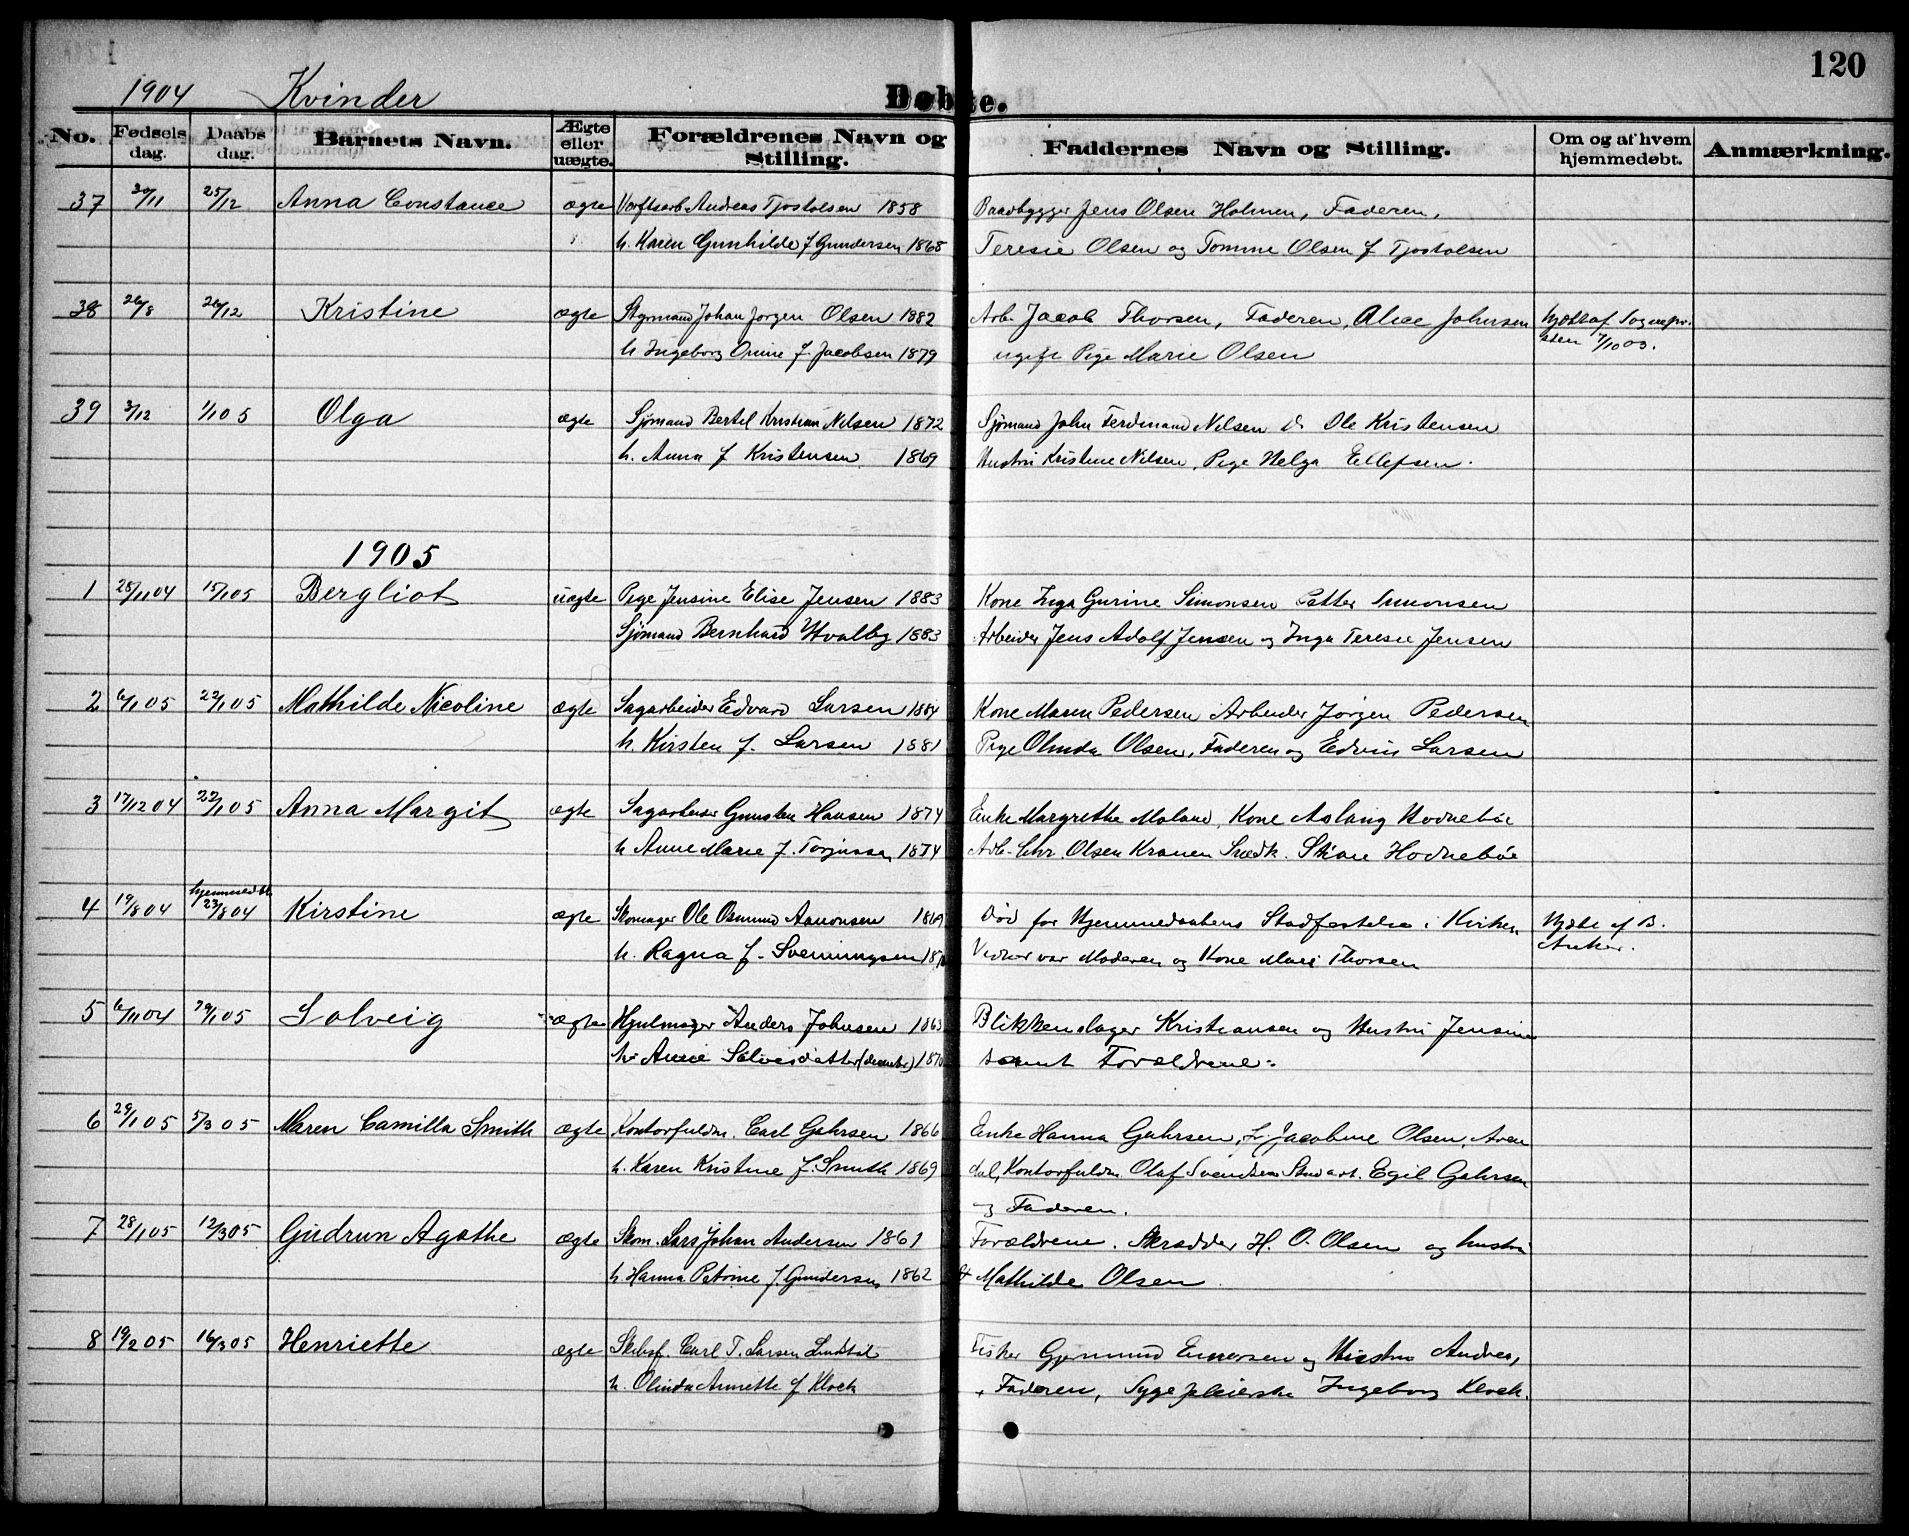 120
1904 Kvinder Døbte.
No. Fødsels dag. Daabs dag. Barnets Navn. Ægte eller uægte. Forældrenes Navn og Stilling. Faddernes Navn og Stilling. Om og af hvem hjemmedøbt. Anmærkning.
37 30/11 25/12 Anna Constance ægte Værftsarb. Andreas Tjostolsen 1858 Baadbygger Jens Olsen Holmen, Faderen,
h. Karen Gunhilde f Gundersen 1868 Teresie Olsen og Tomine Olsen f Tjostolsen
38 26/8 26/12 Kristine ægte Styrmand Johan Jørgen Olsen 1882 Arb. Jacob Thorsen, Faderen, Alice Johnsen Hjdbt af Sognepr.
h Ingeborg f. Jacobsen 1879 ugift Pige Marie Olsen
39 3/12 1/1 05 Olga ægte Sjømand Bertel Kristian Nilsen 1872 Sjømand John Ferdinand Nilsen Ole Kristensen
h. Anna f Kristensen 1869 Hustru Kristine Nilsen, Pige Helga Ellefsen.
1905
1 28/11 04 15/1 05 Bergliot uægte Pige Jensine Elise Jensen 1883 Kone Inga Gurine Simonsen Petter Simonsen
Sjømand Bernhard Hvalby 1883 Arbeider Jens Adolf Jensen og Inga Teresie Jensen
2 6/1 05 22/1 05 Mathilde Nicoline ægte Sagarbeider Edvard Larsen 1884 Kone Maren Pedersen Arbeider Jørgen Pedersen
h Kirsten f. Larsen 1881 Pige Olinda Olsen, Faderen og Edvin Larsen
3 17/12 04 22/1 05 Anna Margit ægte Sagarbeider Gunsten Hansen 1874 Enke Margrethe Moland, Kone Aslaug Hodnebøe
h Anne Marie f. Torjussen 1874 Arb. Chr. Olsen Kranen Snedk. Hodnebøe
4 19/8 04 hjemmedbt. 23/8 04 Kirstine ægte Skomager Ole Osmund Aanonsen 1869 Død før Hjemmedaabens Stadfæstelse i Kirken Hjdbt af B.
h. Ragna f. Svenningsen Vidner var Moderen og Kone Mari Thorsen Anker.
5 6/11 04 29/1 05 Solveig ægte Hjulmager Anders Johnsen 1863 Blikkenslager Kristiansen og Hustru Jensine
h. Anne Salvesdatter samt Forældrene.
6 29/1 05 5/3 05 Maren Camilla Smith ægte Kontorfuldm. Carl Gahrsen 1866 Enke Hanna Gahrsen, Fr Jacobine Olsen, Aren
h. Karen Kristine f. Smith 1869 dal, Kontorfuldm. Olaf Svendsen Stud art. Egil Gahrsen
og Faderen.
7 28/1 05 12/3 05 Gudrun Agathe ægte Skom. Lars Johan Andersen 1861 Forældrene. Skrædder H. O. Olsen og hustru
h Hanna Petrine f. Gundersen 1862 Mathilde Olsen
8 19/2 05 16/3 05 Henriette ægte Skibsf. Carl T. Larsen Lindtal Fisker Gjermund Einersen og Hustru Andrea,
h. Olinda Annette f Klock Faderen, Sygepleierske Ingeborg Klock.